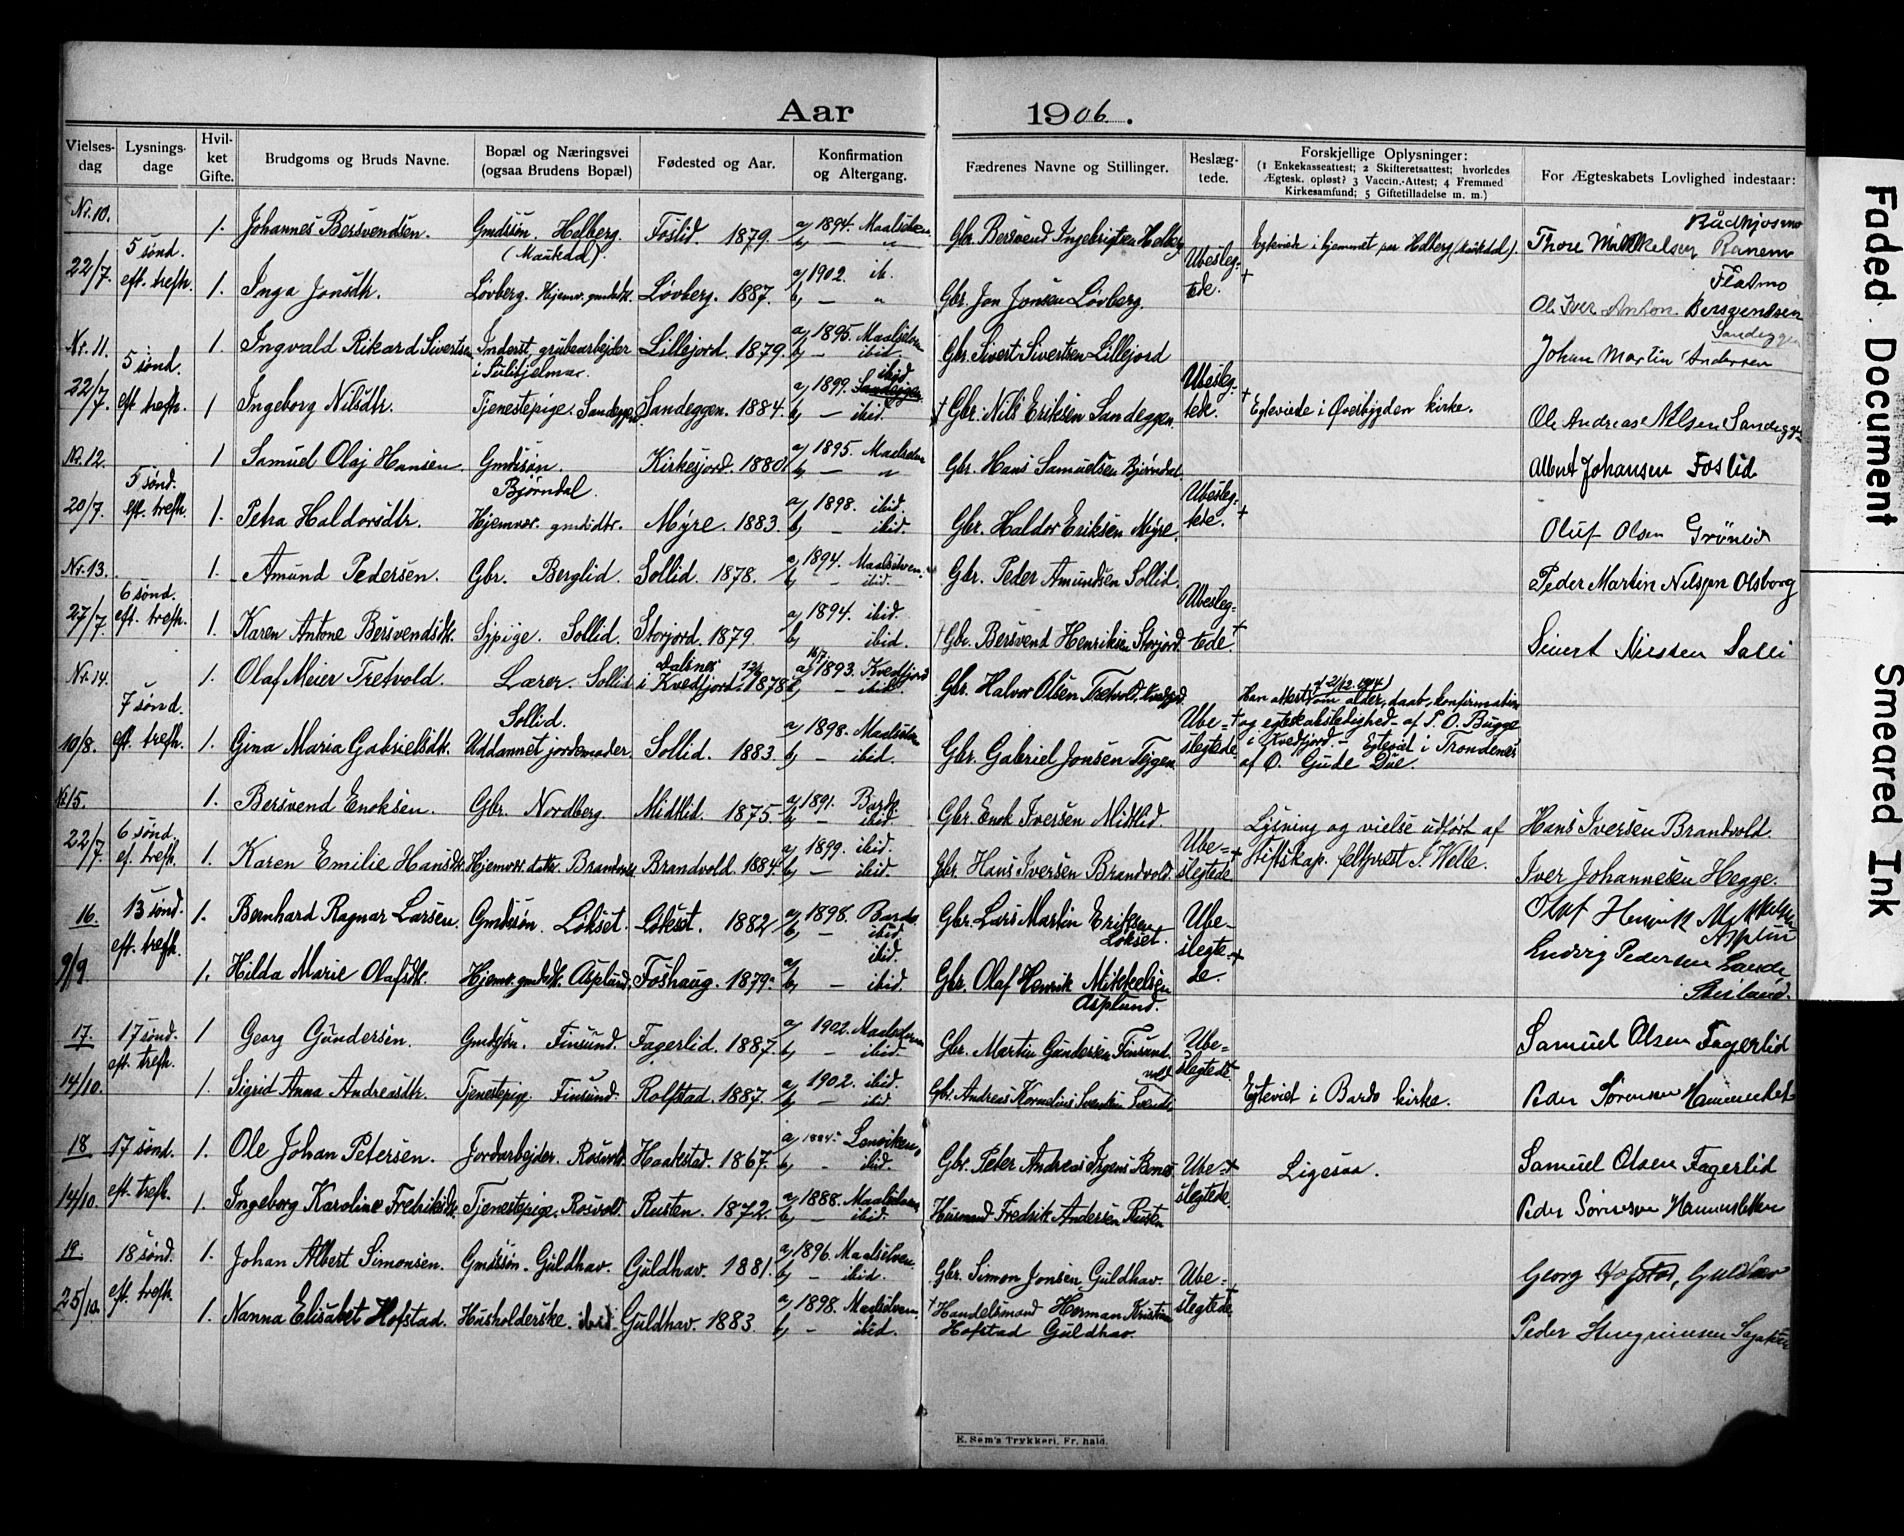 Aar 1906.
Vielses-dag Lysnings-dage Hvil-ket Gifte. Brudgoms og Bruds Navne. Bopæl og Næringsvei (ogsaa Brudens Bopæl) Fødested og Aar. Konfirmation og Altergang. Fædrenes Navne og Stillinger. Beslæg-tede. Forskjellige Oplysninger: (1 Enkekasseattest; 2 Skifteretsattest; hvorledes Ægtesk. opløst? 3 Vaccin.-Attest; 4 Fremmed Kirkesamfund; 5 Giftetilladelse m. m.) For Ægteskabets Lovlighed indestaar:
Nr. 10. 1. Johannes Bersvendsen. Gmdssøn. Holberg. (Maukdal). Foslid. 1879. a/ 1894. Maalselven. b/ — „ Gbr. Bersvend Ingebrigtsen Holberg Ubesleg-tede. Egteviede i hjemmet paa Holberg (Maukdal). Thore Mikkelsen Ranem
22/7. 5 sønd. eft. trefh. 1. Inga Jonsdtr. Løvberg. Hjemv. gmdsdtr. Løvberg. 1887. a/ 1902. ib. b/ — „ Gbr. Jon Jonsen Løvberg. Flatmo
Ole Iver Anton Bersvendsen
Nr. 11. 1. Ingvald Rikard Sivertsen Inderst, grubearbejder i Sulitjelma. Lillejord. 1879. a/ 1895. Maalselven b/ — ibid. Gbr. Sivert Sivertsen Lillejord Johan Martin Andersen Sandeggen
22/7. 5 sønd. eft. trefh. 1 Ingeborg Nilsdtr. Tjenestepige. Sandeggen. Sandeggen. 1884. a/ 1899. ibid b/ — ibid. † Gbr. Nils Eriksen Sandeggen Ubesleg-tede. Egteviede i Øverbygden kirke. Ole Andreas Nilsen Sandeggen
Nr. 12. 1 Samuel Olaj Hansen Gmdssøn. Bjørndal. Kirkesjord. 1880. a/ 1895. Maalselven b/ — „ Gbr. Hans Samuelsen Bjørndal Albert Johansen Foslid
20/7. 5 sønd. eft. trefh. 1. Petra Haldorsdtr. Hjemvær. gmdsdtr. Myre. 1883. a/ 1898. ibid. b/ ibid. Gbr. Haldor Eriksen Myre. Ubesleg-tede. Oluf Olsen Grønlid
Nr. 13. 1. Amund Pedersen. Gbr. Berglid. Sollid. 1878. a/ 1894. Maalselven. b/ — ibid. Gbr. Peder Amundsen Sollid. Peder Martin Nilssen Olsborg
27/7. 6 sønd. eft. trefh. 1. Karen Antone Bersvendsdtr. Sypige. Sollid. Storjord. 1879. a/ 1894. ibid. b/ ibid. † Gbr. Bersvend Henriksen Storjord Ubesleg-tede. Sivert Nilssen Solli
Nr. 14. 1. Olaf Meier Tretvold. Lærer. Sollid Dalsnes i Kvedfjord. 1878. a/ 1893. Kvedfjord b/ — ibid. Gbr. Halvor Olsen Tretvold. Kvedfjord
10/8. 7 sønd. eft. trefh. 1. Gina Maria Gabrielsdtr. Sollid. Uddannet jordemoder. Sollid. 1883. a/ 1898. Maalselven b/ — ibid. Gbr. Gabriel Jonsen Ube-slegtede. Han attest om alder, daab, konfirmation og egteskabsledighed af P. O. Bugge i Kvedfjord. — Egteviet i Trondenes af O. Gude Due.
Nr. 15. 1. Bersvend Enoksen. Gbr. Nordberg. Midtlid. 1875. a/ 1891. Bardo. b/ — ibid. Gbr. Enok Iversen Midtlid Hans Iversen Brandvold.
22/7. 6 sønd. ef. trefh. 1. Karen Emilie Hansdtr. Hjemvær. datter. Brandvold. 1884. a/ 1899. ibid. b/ — ibid. Gbr. Hans Iversen Brandvold. Ube-slegtede Lysning og vielse udført af stiftskap. feltprest I. Welle. Iver Johannesen Hegge.
16. 13 sønd. eft. trefh. 1. Bernhard Ragnar Larsen. Gmdssøn. Løkset. Løkset. 1882 a/ 1898. Bardo b/ — ibid. Gbr. Lars Martin Eriksen Løkset. Ube-slegte-de. Olaf Henrik Mikkelsen Asplun
9/9. 1. Hilda Marie Olafsdtr. Hjemv. gmdsdtr. Asplund. Foshaug. 1879. a/ ibid. b/ — ibid. Gbr. Olaf Henrik Mikkelsen Asplund. Ludvig Pedersen
17. 17 sønd. eft. trefh. 1 Georg Gundersen. Gmdssøn. Finsund. Fagerlid. 1887. a/ 1902. Maalselven b/ — ibid. Gbr. Martin Gundersen Finsund Ube-slegtede. Samuel Olsen Fagerlid
14/10. 1. Sigrid Anna Andreasdtr. Tjenestepig. Finsund. Rolfstad. 1887. a/ 1902. ibid. b/ — ibid. Gbr. Andreas Kornelius Egteviet i Bardo kirke. Peder Sørensen
18 17 sønd. eft. trefh. 1. Ole Johan Petersen. Jordarbejder. Rosvold. Haakstad. 1867. a/ 1884. Lenviken. b/ — ibid. Gbr. Peter Andreas Ube-slegtede. Ligesaa. Samuel Olsen Fagerlid
14/10. 1. Ingeborg Karoline Fredriksdtr. Tjenestepige. Rosvold. Rusten. 1872. a/ 1888. Maalselven b/ — ibid. Husmand Fredrik Andersen Rusten Peder Sørensen
19. 18 sønd. eft. trefh. 1. Johan Albert Simonsen. Gmdssøn. Guldhav. Guldhav. 1881. a/ 1896. Maalselven. b/ — ibid. Gbr. Simon Jonsen Guldhav. Ube-slegtede Georg Hofstad, Guldhav
25/10. 1. Nanna Elisabet Hofstad. Husholderske. ibid. Guldhav. 1883 a/ 1898. Maalselven. b/ — ibid. † Handelsmand Herman Kristian Hofstad Guldhav. Peder
E. Sem's Trykkeri, Fr.hald.
Faded Document
Smeared Ink